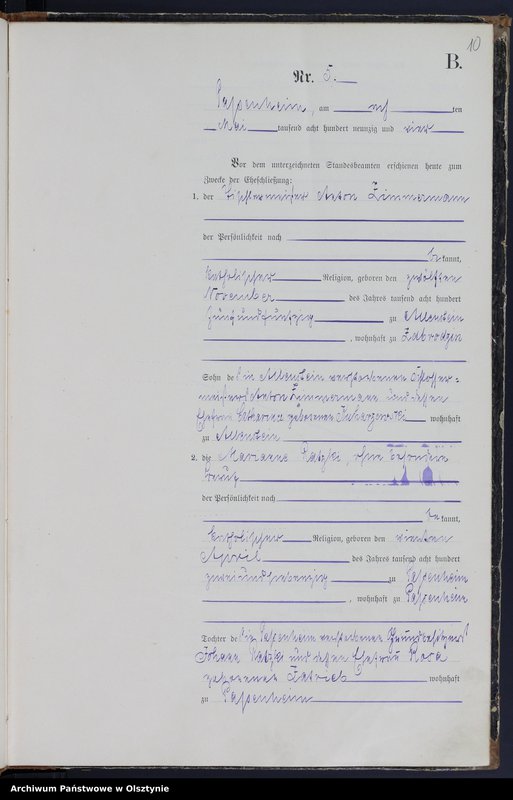 10
B.
Nr. 5.
am ten
Mai tausend acht hundert neunzig und vier
Vor dem unterzeichneten Standesbeamten erschienen heute zum
Zwecke der Eheschließung:
1. der Tischlermeister Anton Zimmermann
der Persönlichkeit nach
be kannt,
katholischer Religion, geboren den zwölften
November des Jahres tausend acht hundert
fünfundfünfzig zu Allenstein
, wohnhaft zu
Sohn des in Allenstein verstorbenen
meisters Anton Zimmermann und dessen
Ehefrau Catharina geborenen wohnhaft
zu Allenstein
2. die Marianna, ohne besonderen
Beruf
der Persönlichkeit nach
be kannt,
katholischer Religion, geboren den vierten
April des Jahres tausend acht hundert
zweiundsiebenzig zu
, wohnhaft zu
Tochter des in verstorbenen
Johann und dessen Ehefrau Rosa
geborenen wohnhaft
zu
Archiwum Państwowe w Olsztynie